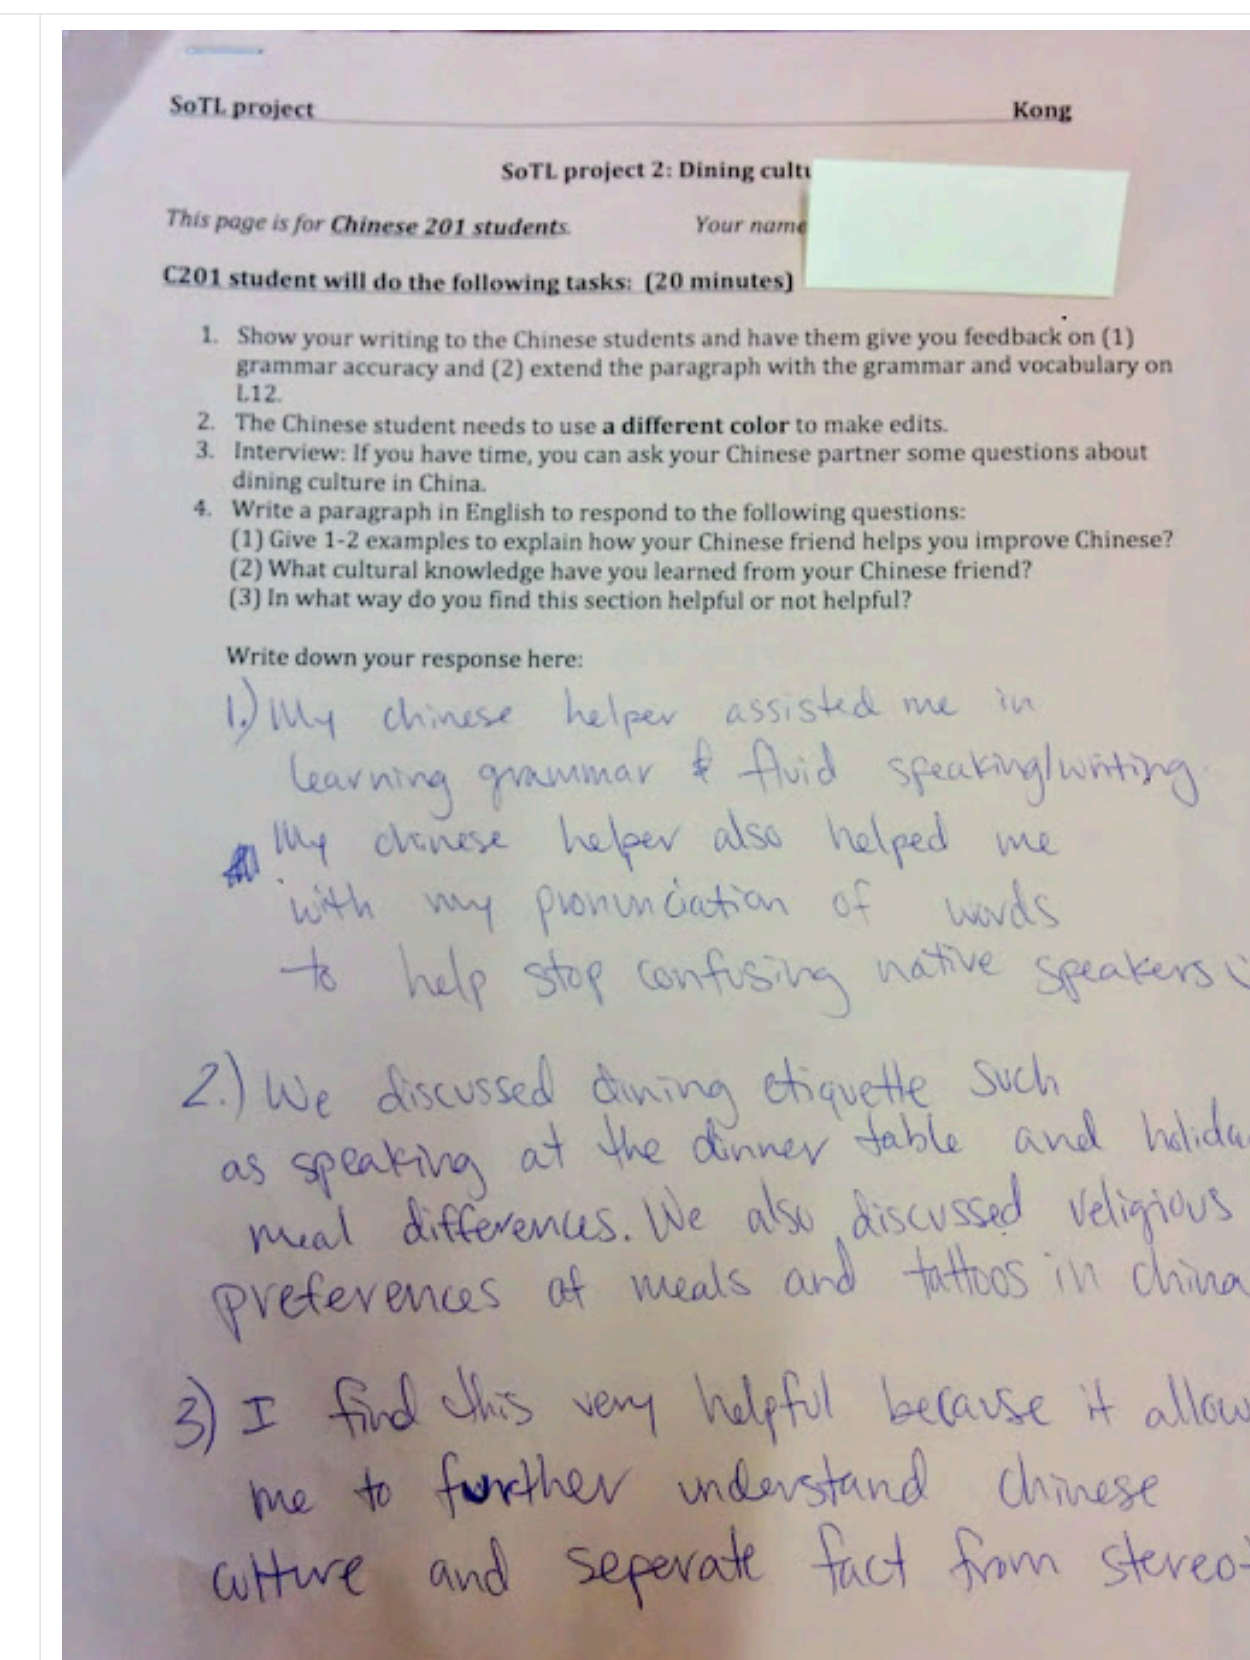 SoTL project Kong
SoTL project 2: Dining cultu
This page is for Chinese 201 students. Your name
C201 student will do the following tasks: (20 minutes)
1. Show your writing to the Chinese students and have them give you feedback on (1)
grammar accuracy and (2) extend the paragraph with the grammar and vocabulary on
L12.
2. The Chinese student needs to use a different color to make edits.
3. Interview: If you have time, you can ask your Chinese partner some questions about
dining culture in China.
4. Write a paragraph in English to respond to the following questions:
(1) Give 1-2 examples to explain how your Chinese friend helps you improve Chinese?
(2) What cultural knowledge have you learned from your Chinese friend?
(3) In what way do you find this section helpful or not helpful?
Write down your response here:
1.) My chinese helper assisted me in
learning grammar & fluid speaking/writing.
My chinese helper also helped me
with my pronunciation of words
to help stop confusing native speakers
2.) We discussed dining etiquette such
as speaking at the dinner table and holida
meal differences. We also discussed religious
preferences at meals and tattoos in china
3) I find this very helpful because it allow
me to further understand chinese
culture and seperate fact from stereot